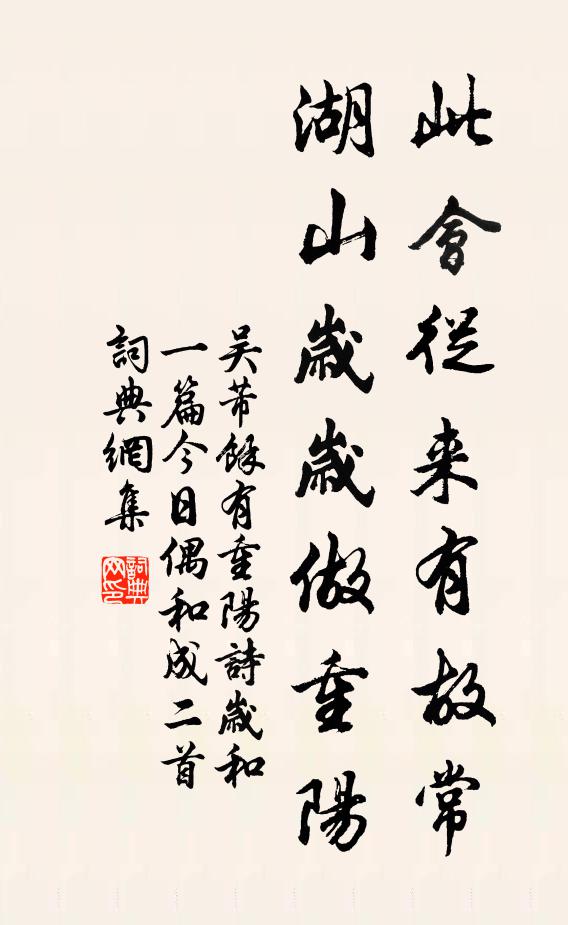 此會從来有故常
湖山歲歲做重陽
吴芾餘有重陽詩歲和
一篇今日偶和成二首
詞典網集
詞典
网印